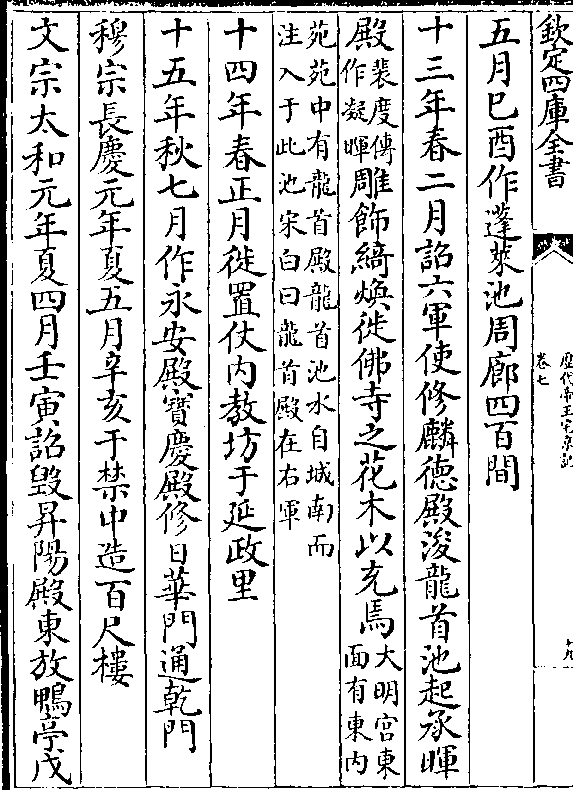 欽定四庫全書
歷代帝王宅京記
卷七
十九
五月己酉作蓬萊池周廊四百間
十三年春二月詔六軍使修麟德殿浚龍首池起承暉
殿裴度傳作凝暉雕飾綺煥徙佛寺之花木以充焉大明宫東面有東内
苑苑中有龍首殿龍首池水自城南而注入于此池宋白曰龍首殿在右軍
十四年春正月徙置仗内教坊于延政里
十五年秋七月作永安殿寶慶殿修日華門通乾門
穆宗長慶元年夏五月辛亥于禁中造百尺樓
文宗太和元年夏四月壬寅詔毀昇陽殿東放鴨亭戊